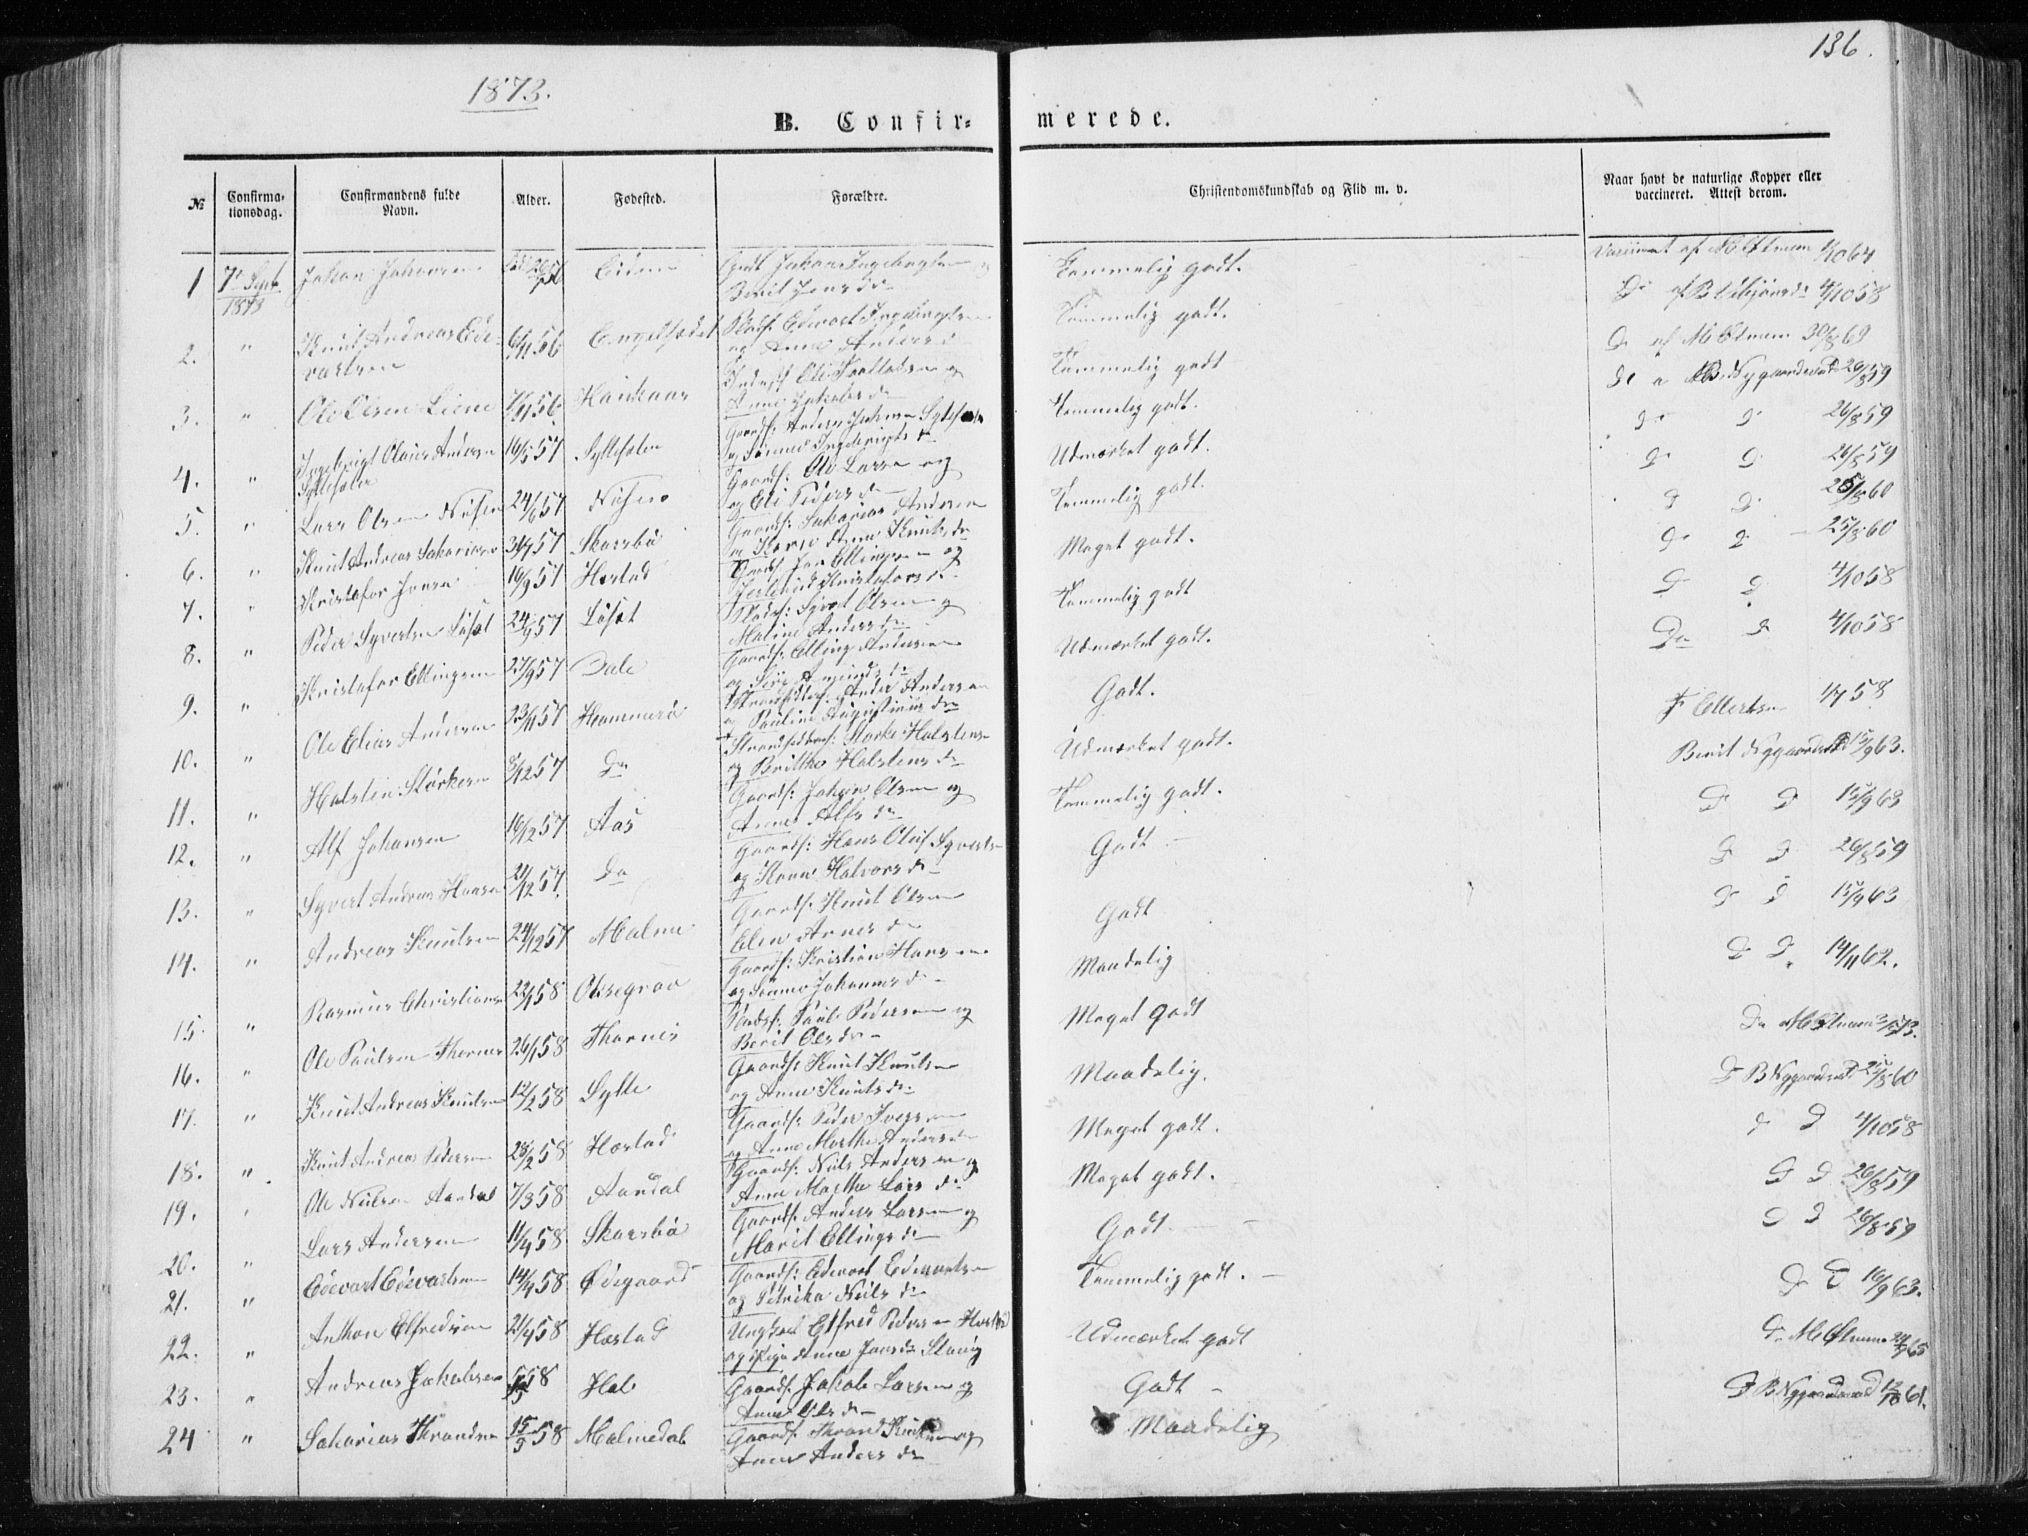 136.
1873.
B. Confir- merede.
№ Confirma-tionsdag. Confirmandens fulde Navn. Alder. Fødested. Forældre. Christendomskundskab og Flid m. v. Naar havt de naturlige Kopper eller vaccineret. Attest derom.
1 7 Sept. 1873 Johan Johansen Gmd. Johan Ingebrigtsen og Berit Jensdr Temmelig godt.
2. " Knut Andreas Edevartsen 6/11 56 Engelsædet Pladsf. Edevart Ingebrigtsen og Anne Andersd Temmelig godt. Do af B 4/10 58
3. " Ole Olsen Liene 7/11 56 Haukaas Inderst Ole og Anne Jakobsdr Temmelig godt Do af M Elnum
4. " Ingebrigt Olaus Andersen Syltesæter 16/5 57 Syltesæter Gaardf. Anders Johnsen Syltesæter og Sønnev Ingebrigtsdr Temmelig godt. B. Nygaardsvold 26/8 59
5. " Lars Olsen 24/6 57 Gaardf: Ole Larsen og Eli Pedersdr Udmærket godt. Do D 26/8 59
6. " Knut Andreas Sakariasen 31/7 57 Skarsbø Gaardf: Sakarias Andersen og Karen Anne Knutsdr Temmelig godt. Do D 26/8 59
7. " Kristofor Jonsen 16/9 57 Harstad Gaardf. Jon Ellingsen og Kristoforsdr Meget godt. D D 25/8 60
8. " Peder Syvertsen Løset 24/9 57 Løset Pladsf: Syvert Olsen og Malene Andersdr Temmelig godt Do D 25/8 60
9. " Kristofor Ellingsen 27/9 57 Dale Gaardf: Elling Andersen og Siri Amundsdr Udmærket godt. D D 4/10 58
10. " Ole Elias Andersen 23/11 57 Hammerø Strandsidder Anders Andersen og Pauline Augustinusdr Godt. Do D 4/10 58
11. " Halsten Størkersen 8/12 57 Do Strandsidder: Størker Halstensen og Brithe Halstensdr Udmærket godt. F Ellertsen 1/7 58
12. " Alf Johansen 16/12 57 Aas Gaardf: Johan Olsen og Anne Alfsdr Temmelig godt. Berit Nygaardsvold 15/9 63.
13. " Syvert Andreas Hansen 21/12 57. Do Gaardf: Hans Oluf Syvertsen og Karen Halvorsdr Godt – D D 15/9 63
14. " Andreas Knutsen 24/12 57 Malme Gaardf: Knut Olsen Elen Arnesdr Godt D D 26/8 59
15. " Rasmus Christiansen 22/1 58 Gaardf: Kristian Hansen og Sønnev Johannesdr Maadelig D D 15/9 63
16. " Ole Paulsen Thornes 26/1 58 Thornes Pladsf: Paul Pedersen og Berit Olsdr Meget godt D D. 14/11 62.
17. " Knut Andreas Knutsen 12/2 58 Sylte Gaardf: Knut Knutsen og Anne Knutsdr Maadelig. Do M Elnum
18. " Knut Andreas Pedersen 28/2 58 Harstad Gaardf: Peder Iversen og Anne Marthe Andersdr Meget godt. D B Nygaardsvold 25/8 60
19. " Ole Nielsen Aandal 7/3 58 Aandal Gaardf: Niels Andersen og Anne Marthe Larsdr Meget godt. D D 4/10 58
20. " Lars Andersen 11/4 58 Skarsbø Gaardf. Anders Larsen og Marit Ellingsdr Godt. – D D 26/8 59
21. " Edevart Edevartsen 14/4 58 Ødegaard Gaardf: Edevart Edevartsen og Petrika Nielsdr Temmelig godt. – D D 26/8 59
22. " Anthon Elfredsen 21/4 58 Harstad Ungkarl Elfred Pedersen Harstad og Pige Anne Jonsdr Udmærket godt D D 16/9 63.
23. " Andreas Jakobsen 58 Hol Gaardf. Jakob Larsen og Anne Olsdr Godt – Do M Elnum
24 " Sakarias Throndsen 15/5 58 Malmedal Gaardf. Thrond Knutsen og Anne Andersdr Maadelig D B Nygaardsvold 61.